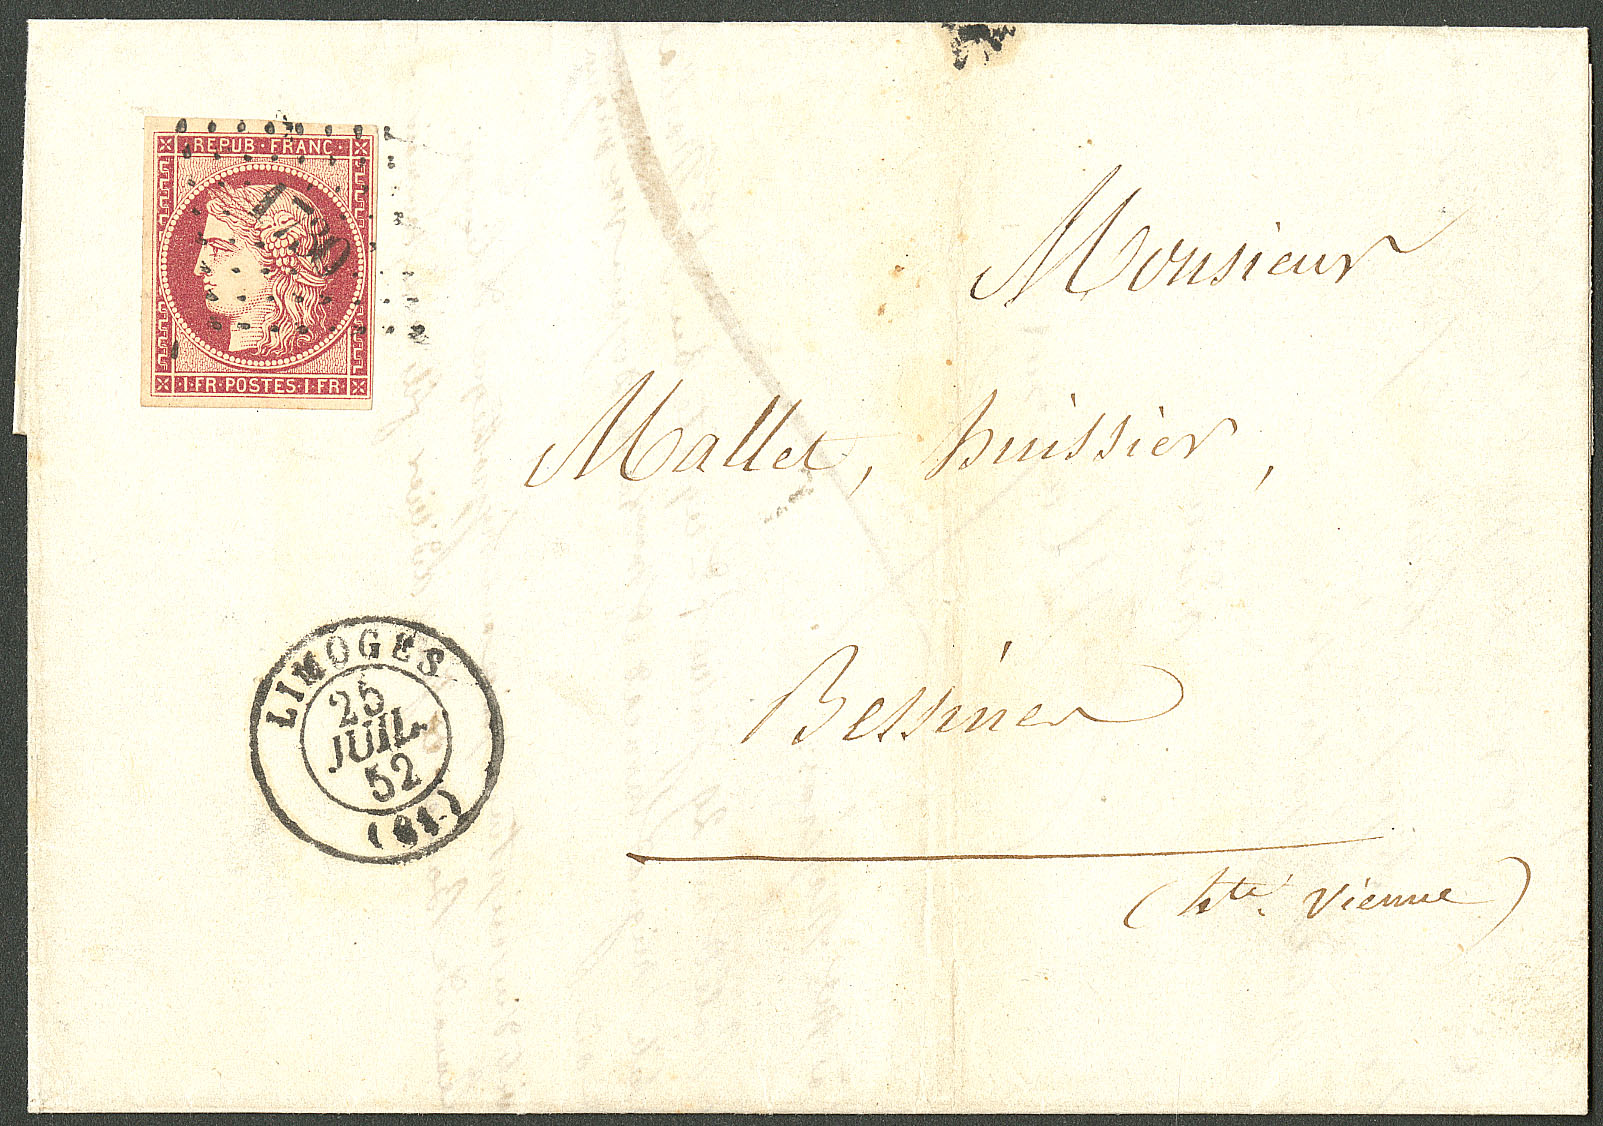 REPUB · FRANC ·
1730
1 · FR · POSTES · 1 · FR
Monsieur
Mallet, huissier,
Bessines
(hte. Vienne)
LIMOGES
25
JUIL.
52